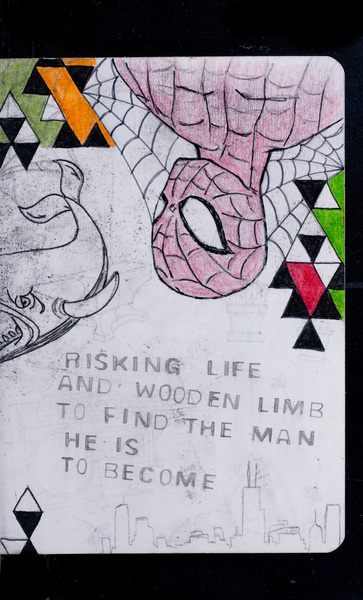 RISKING LIFE
AND WOODEN LIMB
TO FIND THE MAN
HE IS
TO BECOME